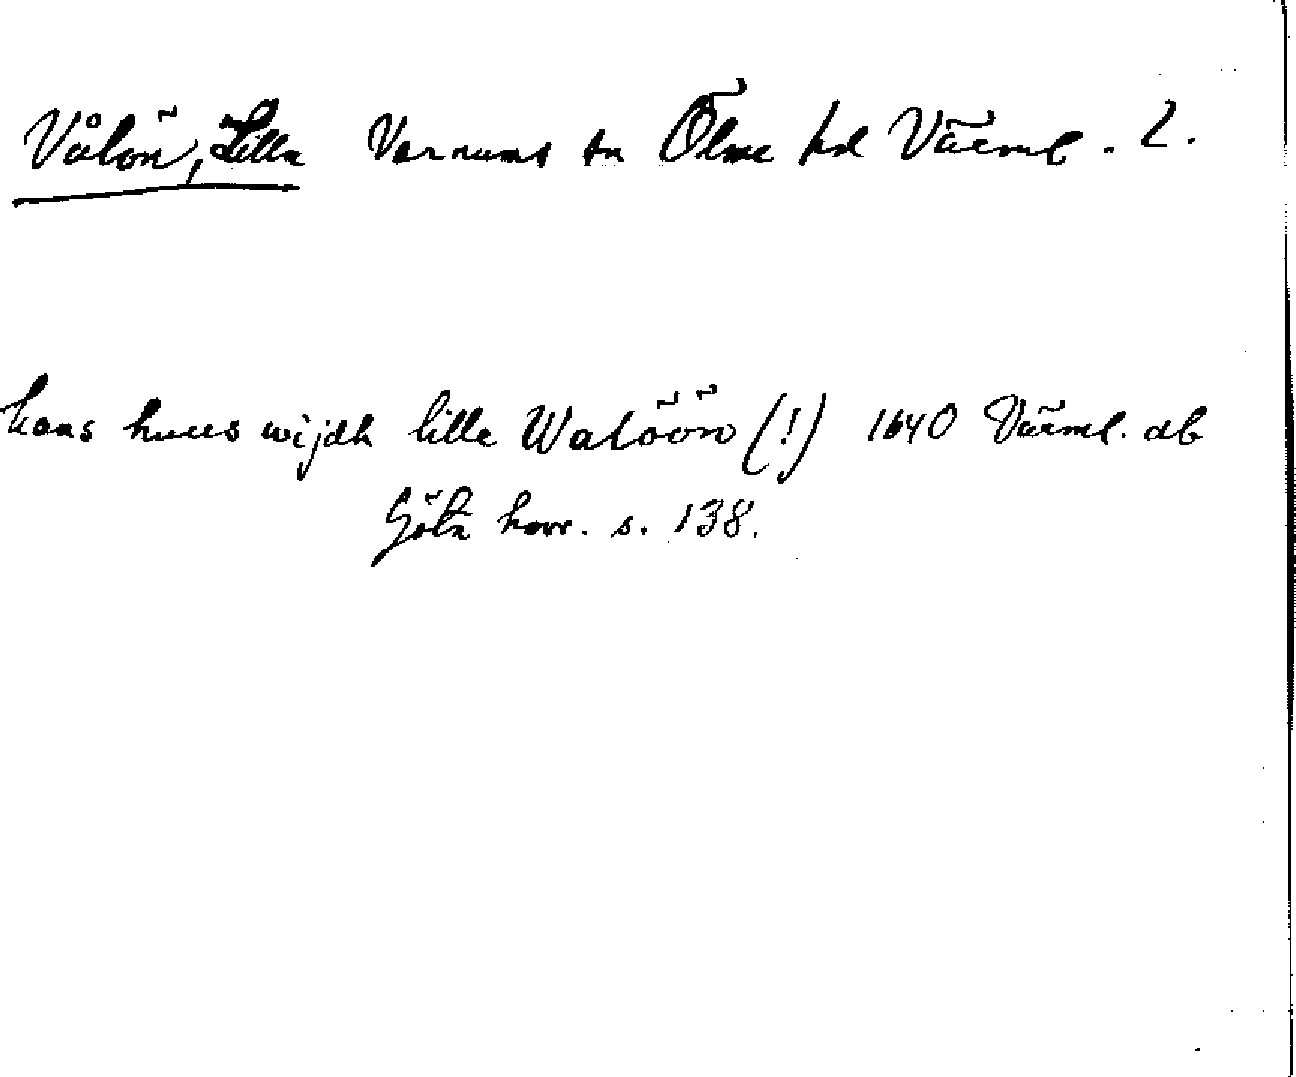 Vålön, Lilla Varnums sn Ölme hd Värml. L.
hans huus wijdh lille Walöön (!) 1640 Värml. db
Göta hovr. s. 138.